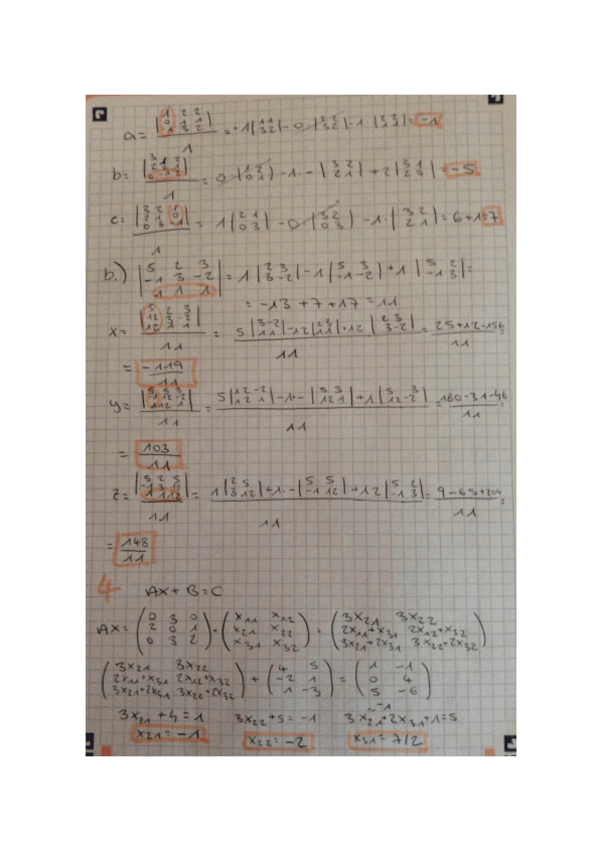 a = |1 2 2; 0 1 1; -1 3 2| / 1 = 1|1 1; 3 2| - 0 |2 2; 3 2| - 1 | | = -1
b = / 1 = 0 |1 2; 0 1| - 1 · - |3 2; 2 1| + 2 | | = -5
c = |3 2 1; 2 1 0; 0 3 -1| / 1 = 1 |2 1; 0 3| - 0 |3 2; 0 3| - 1 · |3 2; 2 1| = 6 + 1 = 7
b.) |5 2 3; -1 3 -2; 1 1 1| = 1 |2 3; 3 -2| - 1 |5 3; -1 -2| + 1 |5 2; -1 3| =
= -13 + 7 + 17 = 11
x = |5 2 3; 12 3 -2; 12 1 1| / 11 = 5 |3 -2; 1 1| - 12 |2 3; 1 1| + 12 |2 3; 3 -2| / 11 = 25 + 12 - 156 / 11
= -119 / 11
y = / 11 = 5 |12 -2; 12 1| - 1 · - |5 3; 12 1| + 1 |5 3; 12 -2| / 11 = 180 - 31 - 46 / 11
= 103 / 11
z = |5 2 5; -1 3 12; 1 1 12| / 11 = 1 |2 5; 3 12| + 1 · - |5 5; -1 12| + 12 |5 2; -1 3| / 11 = 9 - 65 + 204 / 11 =
= 148 / 11
4 AX + B = C
AX = (0 3 0; 2 0 1; 0 3 2) · (x11 x12; x21 x22; x31 x32) = (3x21 3x22; 2x11+x31 2x12+x32; 3x21+2x31 3x22+2x32)
(3x21 3x22; 2x11+x31 2x12+x32; 3x21+2x31 3x22+2x32) + (4 5; -2 1; 1 -3) = (1 -1; 0 4; 5 -6)
3x21 + 4 = 1 3x22 + 5 = -1 3x21 + 2x31 + 1 = 5
x21 = -1 x22 = -2 x31 = 7/2